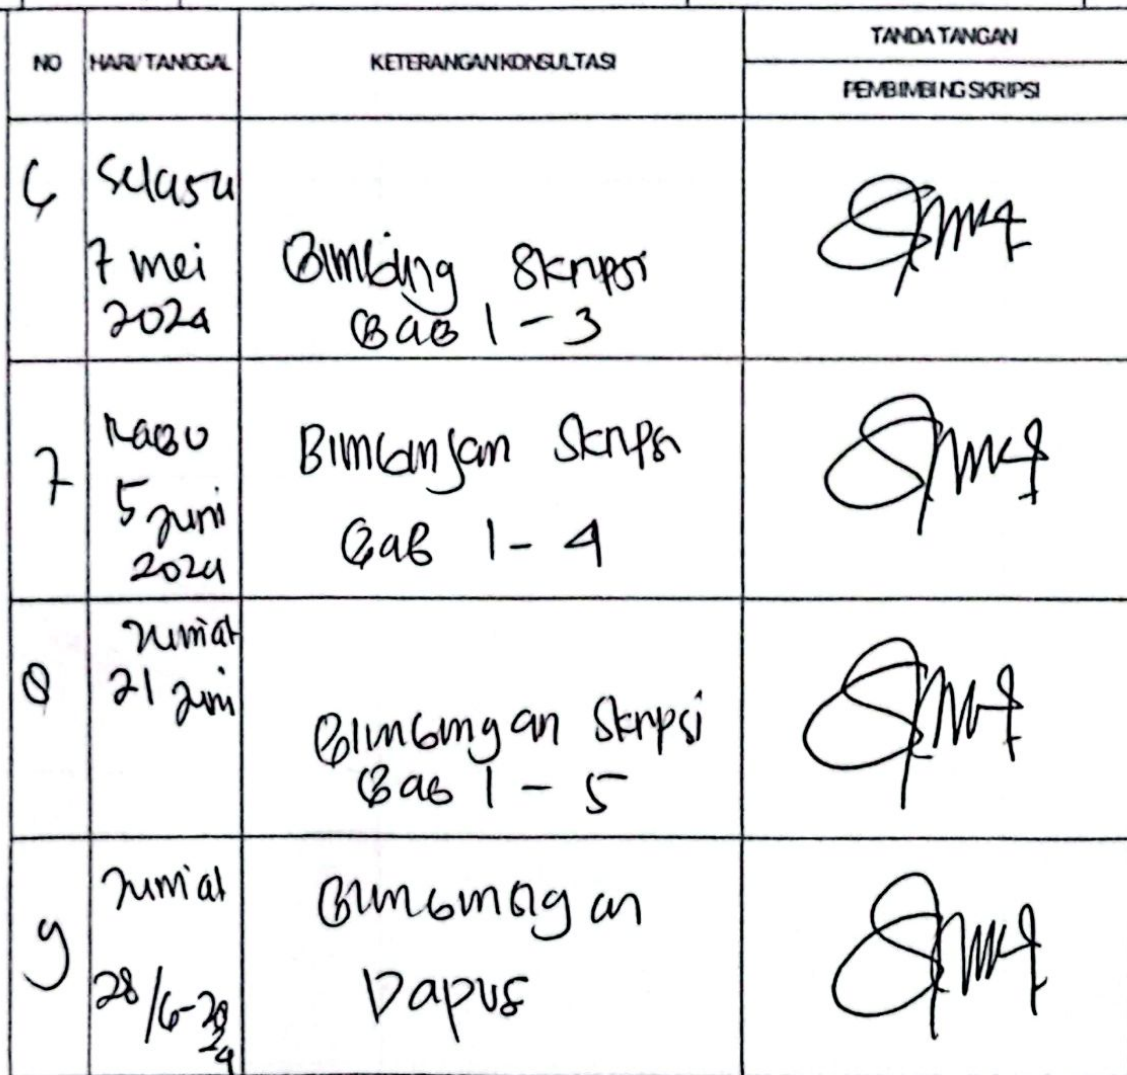 NO HARI/TANGGAL KETERANGAN KONSULTASI TANDA TANGAN
PEMBIMBING SKRIPSI
6 Selasa
7 mei
2024
Bimbing Skripsi
Bab 1 - 3
7 Rabu
5 Juni
2024
Bimbingan Skripsi
Bab 1 - 4
8 Jumiat
21 Juni
Bimbingan Skripsi
Bab 1 - 5
9 Jumiat
28/6-2024
Bimbingan
Dapus